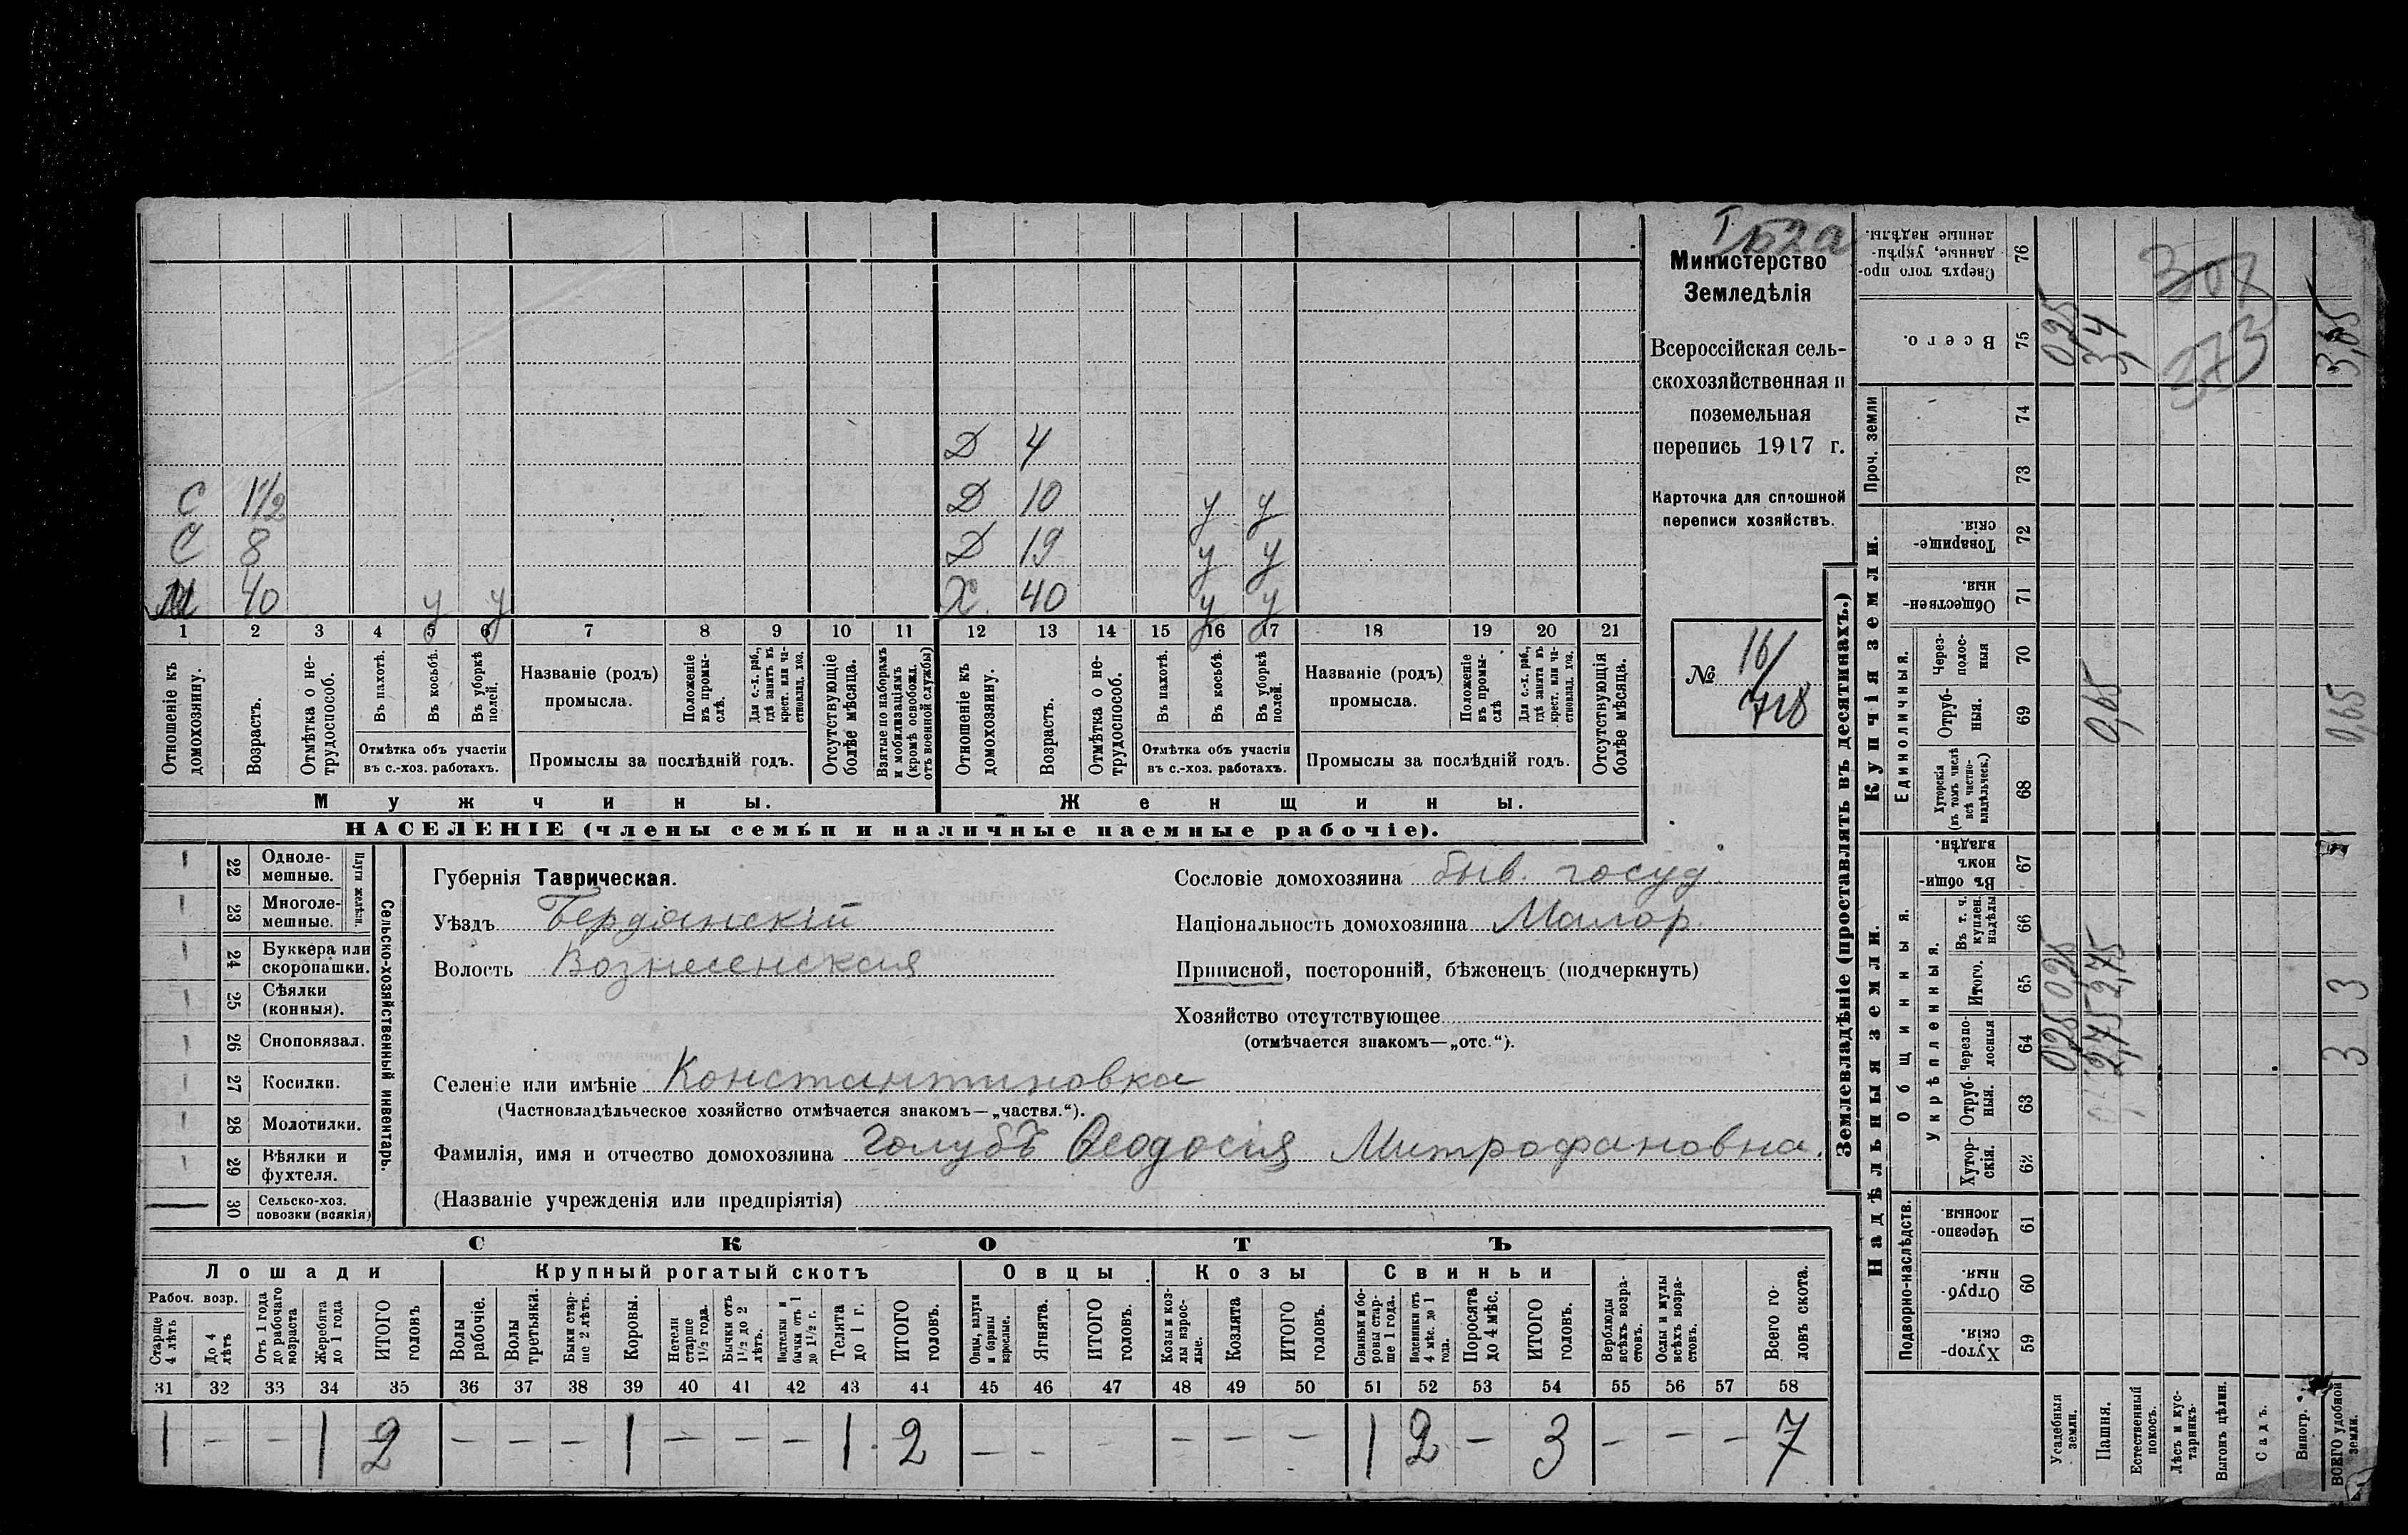 Министерство
Земледѣлія
Всероссійская сель-
скохозяйственная и
поземельная
перепись 1917 г.
Карточка для сплошной
переписи хозяйствъ.
№ 16/718
Д 4
С 1 1/2 Д 10 у у
С 8 Д 19 у у
М 40 у у Х 40 у у
1 2 3 4 5 6 7 8 9 10 11 12 13 14 15 16 17 18 19 20 21
Отношеніе къ домохозяину.
Возрастъ.
Отмѣтка о не-трудоспособ.
Въ пахотѣ.
Въ косьбѣ.
Въ уборкѣ полей.
Отмѣтка объ участіи
въ с.-хоз. работахъ.
Названіе (родъ)
промысла.
Положеніе въ промы-слѣ.
Для с.-х. раб., гдѣ занятъ въ крест. или ча-стновлад. хоз.
Промыслы за послѣдній годъ.
Отсутствующіе болѣе мѣсяца.
Взятые по наборамъ и мобилизаціямъ (кромѣ освобожд. отъ военной службы)
Отношеніе къ домохозяину.
Возрастъ.
Отмѣтка о не-трудоспособ.
Въ пахотѣ.
Въ косьбѣ.
Въ уборкѣ полей.
Отмѣтка объ участіи
въ с.-хоз. работахъ.
Названіе (родъ)
промысла.
Положеніе въ промы-слѣ
Для с.-х. раб., гдѣ занята въ крест. или ча-стновлад. хоз.
Промыслы за послѣдній годъ.
Отсутствующія болѣе мѣсяца.
Мужчины. Женщины.
НАСЕЛЕНІЕ (члены семьи и наличные наемные рабочіе).
Сельско-хозяйственный инвентарь.
Плуги желѣзн.
22 Одноле-мешные.
23 Многоле-мешные.
24 Буккера или скоропашки.
25 Сѣялки (конныя).
26 Сноповязал.
27 Косилки.
28 Молотилки.
29 Вѣялки и фухтеля.
30 Сельско-хоз. повозки (всякія)
Губернія Таврическая.
Уѣздъ Бердянскій
Волость Вознесенская
Сословіе домохозяина быв. госуд.
Національность домохозяина Малор.
Приписной, посторонній, бѣженецъ (подчеркнуть)
Хозяйство отсутствующее
(отмѣчается знакомъ—„отс.“).
Селеніе или имѣніе Константиновка
(Частновладѣльческое хозяйство отмѣчается знакомъ—„частвл.“).
Фамилія, имя и отчество домохозяина Голубъ Ѳеодосія Митрофановна.
(Названіе учрежденія или предпріятія)
СКОТЪ
Лошади Крупный рогатый скотъ Овцы Козы Свиньи
Рабоч. возр.
Старше 4 лѣтъ
До 4 лѣтъ
Отъ 1 года до рабочаго возраста
Жеребята до 1 года
ИТОГО головъ
Волы рабочіе.
Волы третьяки.
Быки стар-ше 2 лѣтъ.
Коровы.
Нетели старше 1 1/2 года.
Бычки отъ 1 1/2 до 2 лѣтъ.
Подтелки и бычки отъ 1 до 1 1/2 г.
Телята до 1 г.
ИТОГО головъ.
Овцы, валухи и бараны взрослые.
Ягнята.
ИТОГО головъ.
Козы и коз-лы взрос-лые.
Козлята
ИТОГО головъ.
Свиньи и бо-ровы стар-ше 1 года.
Подсвинки отъ 4 мѣс. до 1 года.
Поросята до 4 мѣс.
ИТОГО головъ.
Верблюды всѣхъ возра-стовъ.
Ослы и мулы всѣхъ возра-стовъ.
Всего го-ловъ скота.
31 32 33 34 35 36 37 38 39 40 41 42 43 44 45 46 47 48 49 50 51 52 53 54 55 56 57 58
1 – – 1 2 – – – 1 – – – 1 2 – – – – – – 1 2 – 3 – – – 7
Землевладѣніе (проставлять въ десятинахъ.)
Надѣльныя земли.
Купчія земли.
Проч. земли
Подворно-наслѣдств.
Общинныя.
Укрѣпленныя.
Единоличныя.
59 Хутор-скія.
60 Отруб-ныя.
61 Черезпо-лосныя
62 Хутор-скія.
63 Отруб-ныя.
64 Черезпо-лосныя
65 Итого.
66 Въ т. ч. куплен. надѣлы
67 Въ общи-номъ владѣн.
68 Хуторскія (въ томъ числѣ всѣ частно-владѣльческ.)
69 Отруб-ныя.
70 Через-полос-ныя
71 Обществен-ныя.
72 Товарище-скія.
73
74
75 Всего.
76 Сверхъ того про-данные, укрѣп-ленные надѣлы.
Усадебныя земли. 0,25 0,25 0,25
Пашня. 2,75 2,75 0,65 3,4
Естественный покосъ.
Лѣсъ и кус-тарникъ.
Выгонъ цѣлин.
Садъ.
Виногр.
ВСЕГО удобной земли. 3 3 0,65 3,65
307
373